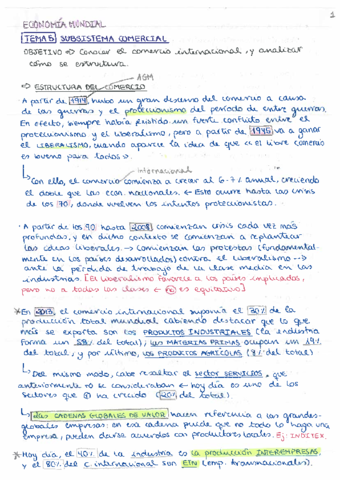 1
ECONOMÍA MUNDIAL
TEMA 5 SUBSISTEMA COMERCIAL
OBJETIVO => Conocer el comercio internacional, y analizar
cómo se estructura.
AGM
=> ESTRUCTURA DEL COMERCIO
A partir de 1914, hubo un gran descenso del comercio a causa
de las guerras y el proteccionismo del período de entre guerras.
En efecto, siempre había existido un fuerte conflicto entre el
proteccionismo y el liberalismo, pero a partir de 1945 va a ganar
el LIBERALISMO, cuando aparece la idea de que el libre comercio
es bueno para todos.
internacional
Con ello, el comercio comienza a crecer al 6-7% anual, creciendo
el doble que las econ. nacionales. Esto ocurre hasta las crisis
de los 70, donde vuelven los intentos proteccionistas.
· A partir de los 90 hasta 2008 comienzan crisis cada vez más
profundas, y en dicho contexto se comienzan a replantear
las ideas liberales -> Comienzan las protestas (fundamental-
mente en los países desarrollados) contra el liberalismo -->
ante la pérdida de trabajo de la clase media en las
industrias. [El liberalismo favorece a los países implicados,
pero no a todas las clases <- no es equitativo]
* En 2013, el comercio internacional suponía el 30% de la
producción total mundial, cabiendo destacar que lo que
más se exporta son los PRODUCTOS INDUSTRIALES (la industria
forma un 58% del total); las MATERIAS PRIMAS ocupan un 19%
del total, y por último, los PRODUCTOS AGRÍCOLAS (9% del total)
Del mismo modo, cabe resaltar el sector SERVICIOS, que
anteriormente no se consideraban <- hoy día es uno de los
sectores que + ha crecido (20% del total).
Las CADENAS GLOBALES DE VALOR hacen referencia a las grandes-
globales empresas: en esa cadena puede que no todo lo haga una
empresa, pueden darse acuerdos con productores locales. Ej: INDITEX.
* Hoy día, el 40% de la industria es la producción INTEREMPRESAS,
y el 80% del c. internacional son ETN (emp. transnacionales).